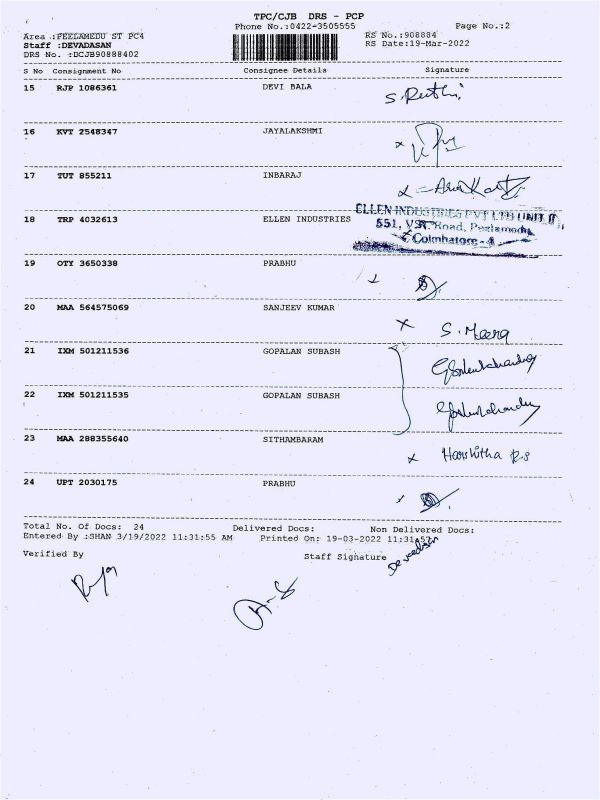 TPC/CJB DRS - PCP
Phone No.:0422-3505555 Page No.:2
Area .:PEELAMEDU ST PC4 RS No.:908884
Staff :DEVADASAN RS Date:19-Mar-2022
DRS No. :DCJB90888402
S No Consignment No Consignee Details Signature
15 RJP 1086361 DEVI BALA
16 KVT 2548347 JAYALAKSHMI
17 TUT 855211 INBARAJ
ELLEN INDUSTRIES PVT LTD UNIT II
18 TRP 4032613 ELLEN INDUSTRIES 551, Road, Peelamedu
Coimbatore - 4
19 OTY 3650338 PRABHU
20 MAA 564575069 SANJEEV KUMAR
S. Meena
21 IXM 501211536 GOPALAN SUBASH
22 IXM 501211535 GOPALAN SUBASH
23 MAA 288355640 SITHAMBARAM
Harshitha R S
24 UPT 2030175 PRABHU
Total No. Of Docs: 24 Delivered Docs: Non Delivered Docs:
Entered By .:SHAN 3/19/2022 11:31:55 AM Printed On: 19-03-2022 11:31:57
Verified By Staff Signature